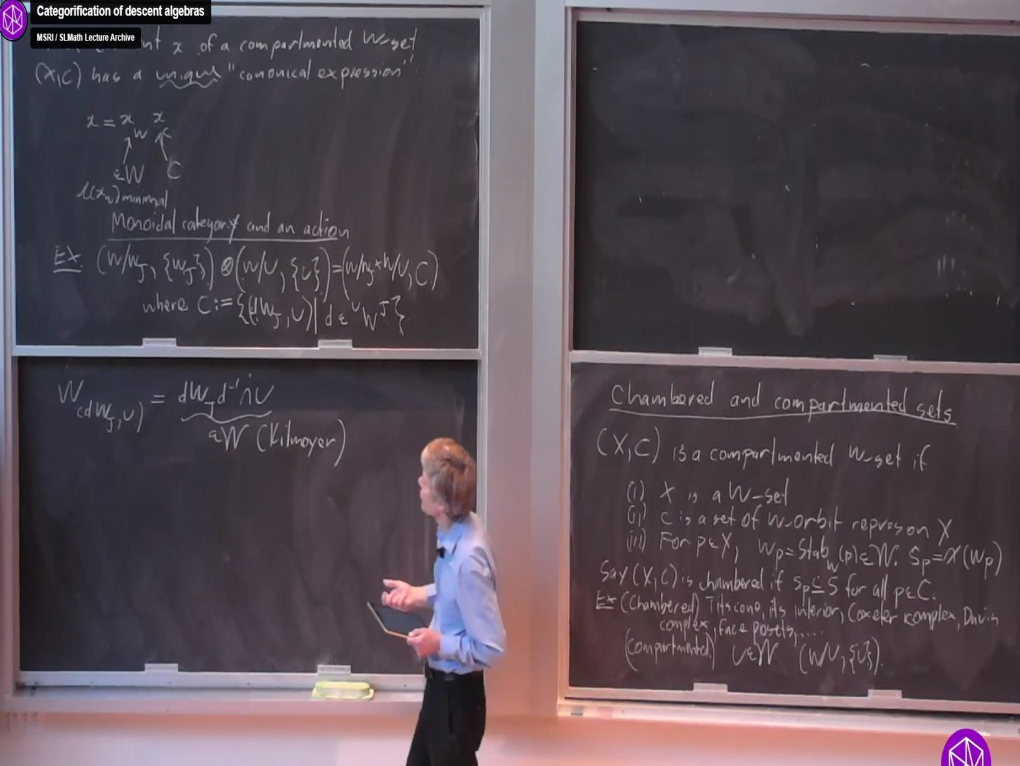 Categorification of descent algebras
MSRI / SLMath Lecture Archive
x of a compartmented W-set
(X,C) has a unique "canonical expression".
x = x_W x_C
∈W C
l(x_W) minimal
Monoidal category and an action
Ex (W/W_J, {W_J}) ⊗ (W/U, {U}) = (W/W_J × W/U, C)
where C := {(dW_J, U) | d ∈ ^U W^J}.
W_(dW_J, U) = dW_J d^-1 ∩ U
∈W (Kilmoyer)
Chambered and compartmented sets
(X,C) is a compartmented W-set if
(i) X is a W-set
(ii) C is a set of W-orbit repres on X
(iii) For p∈X, W_p = Stab_W(p) ∈ W. S_p = χ(W_p)
Say (X,C) is chambered if S_p ⊆ S for all p∈C.
Ex (Chambered) Tits cone, its interior, Coxeter complex, Davis
complex, face posets, ....
(compartmented) U∈W (W/U, {U}).